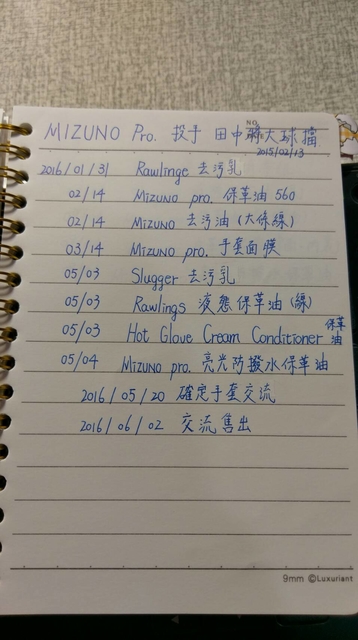 MIZUNO Pro. 投手 田中將大球擋
NO.
2015/02/13
2016/01/31 Rawlinge 去污乳
02/14 Mizuno pro. 保革油 560
02/14 Mizuno 去污油(大條線)
03/14 Mizuno pro. 手套面膜
05/03 Slugger 去污乳
05/03 Rawlings 液態保革油(綠)
05/03 Hot Glove Cream Conditioner 保革油
05/04 Mizuno pro. 亮光防撥水保革油
2016/05/20 確定手套交流
2016/06/02 交流售出
9mm ©Luxuriant